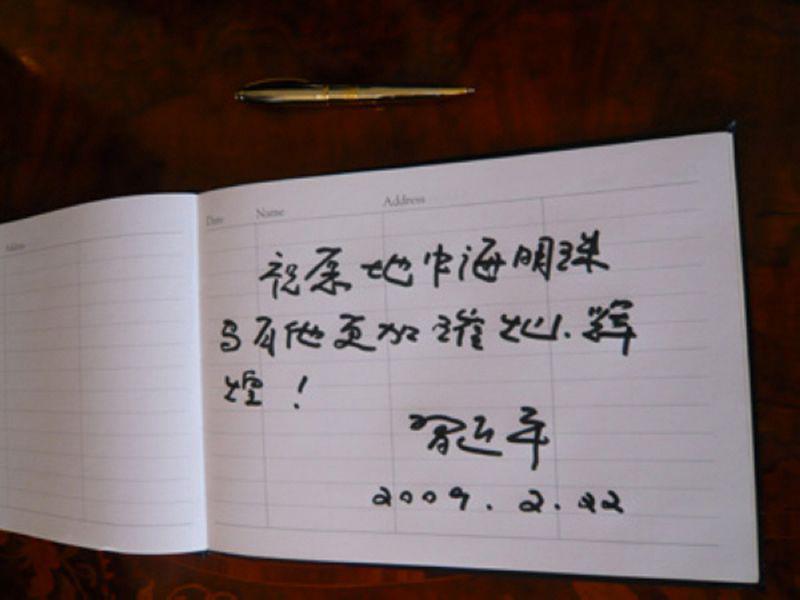 Address
Date Name Address
祝愿地中海明珠
马耳他更加璀灿.辉
煌！
习近平
2009.2.22